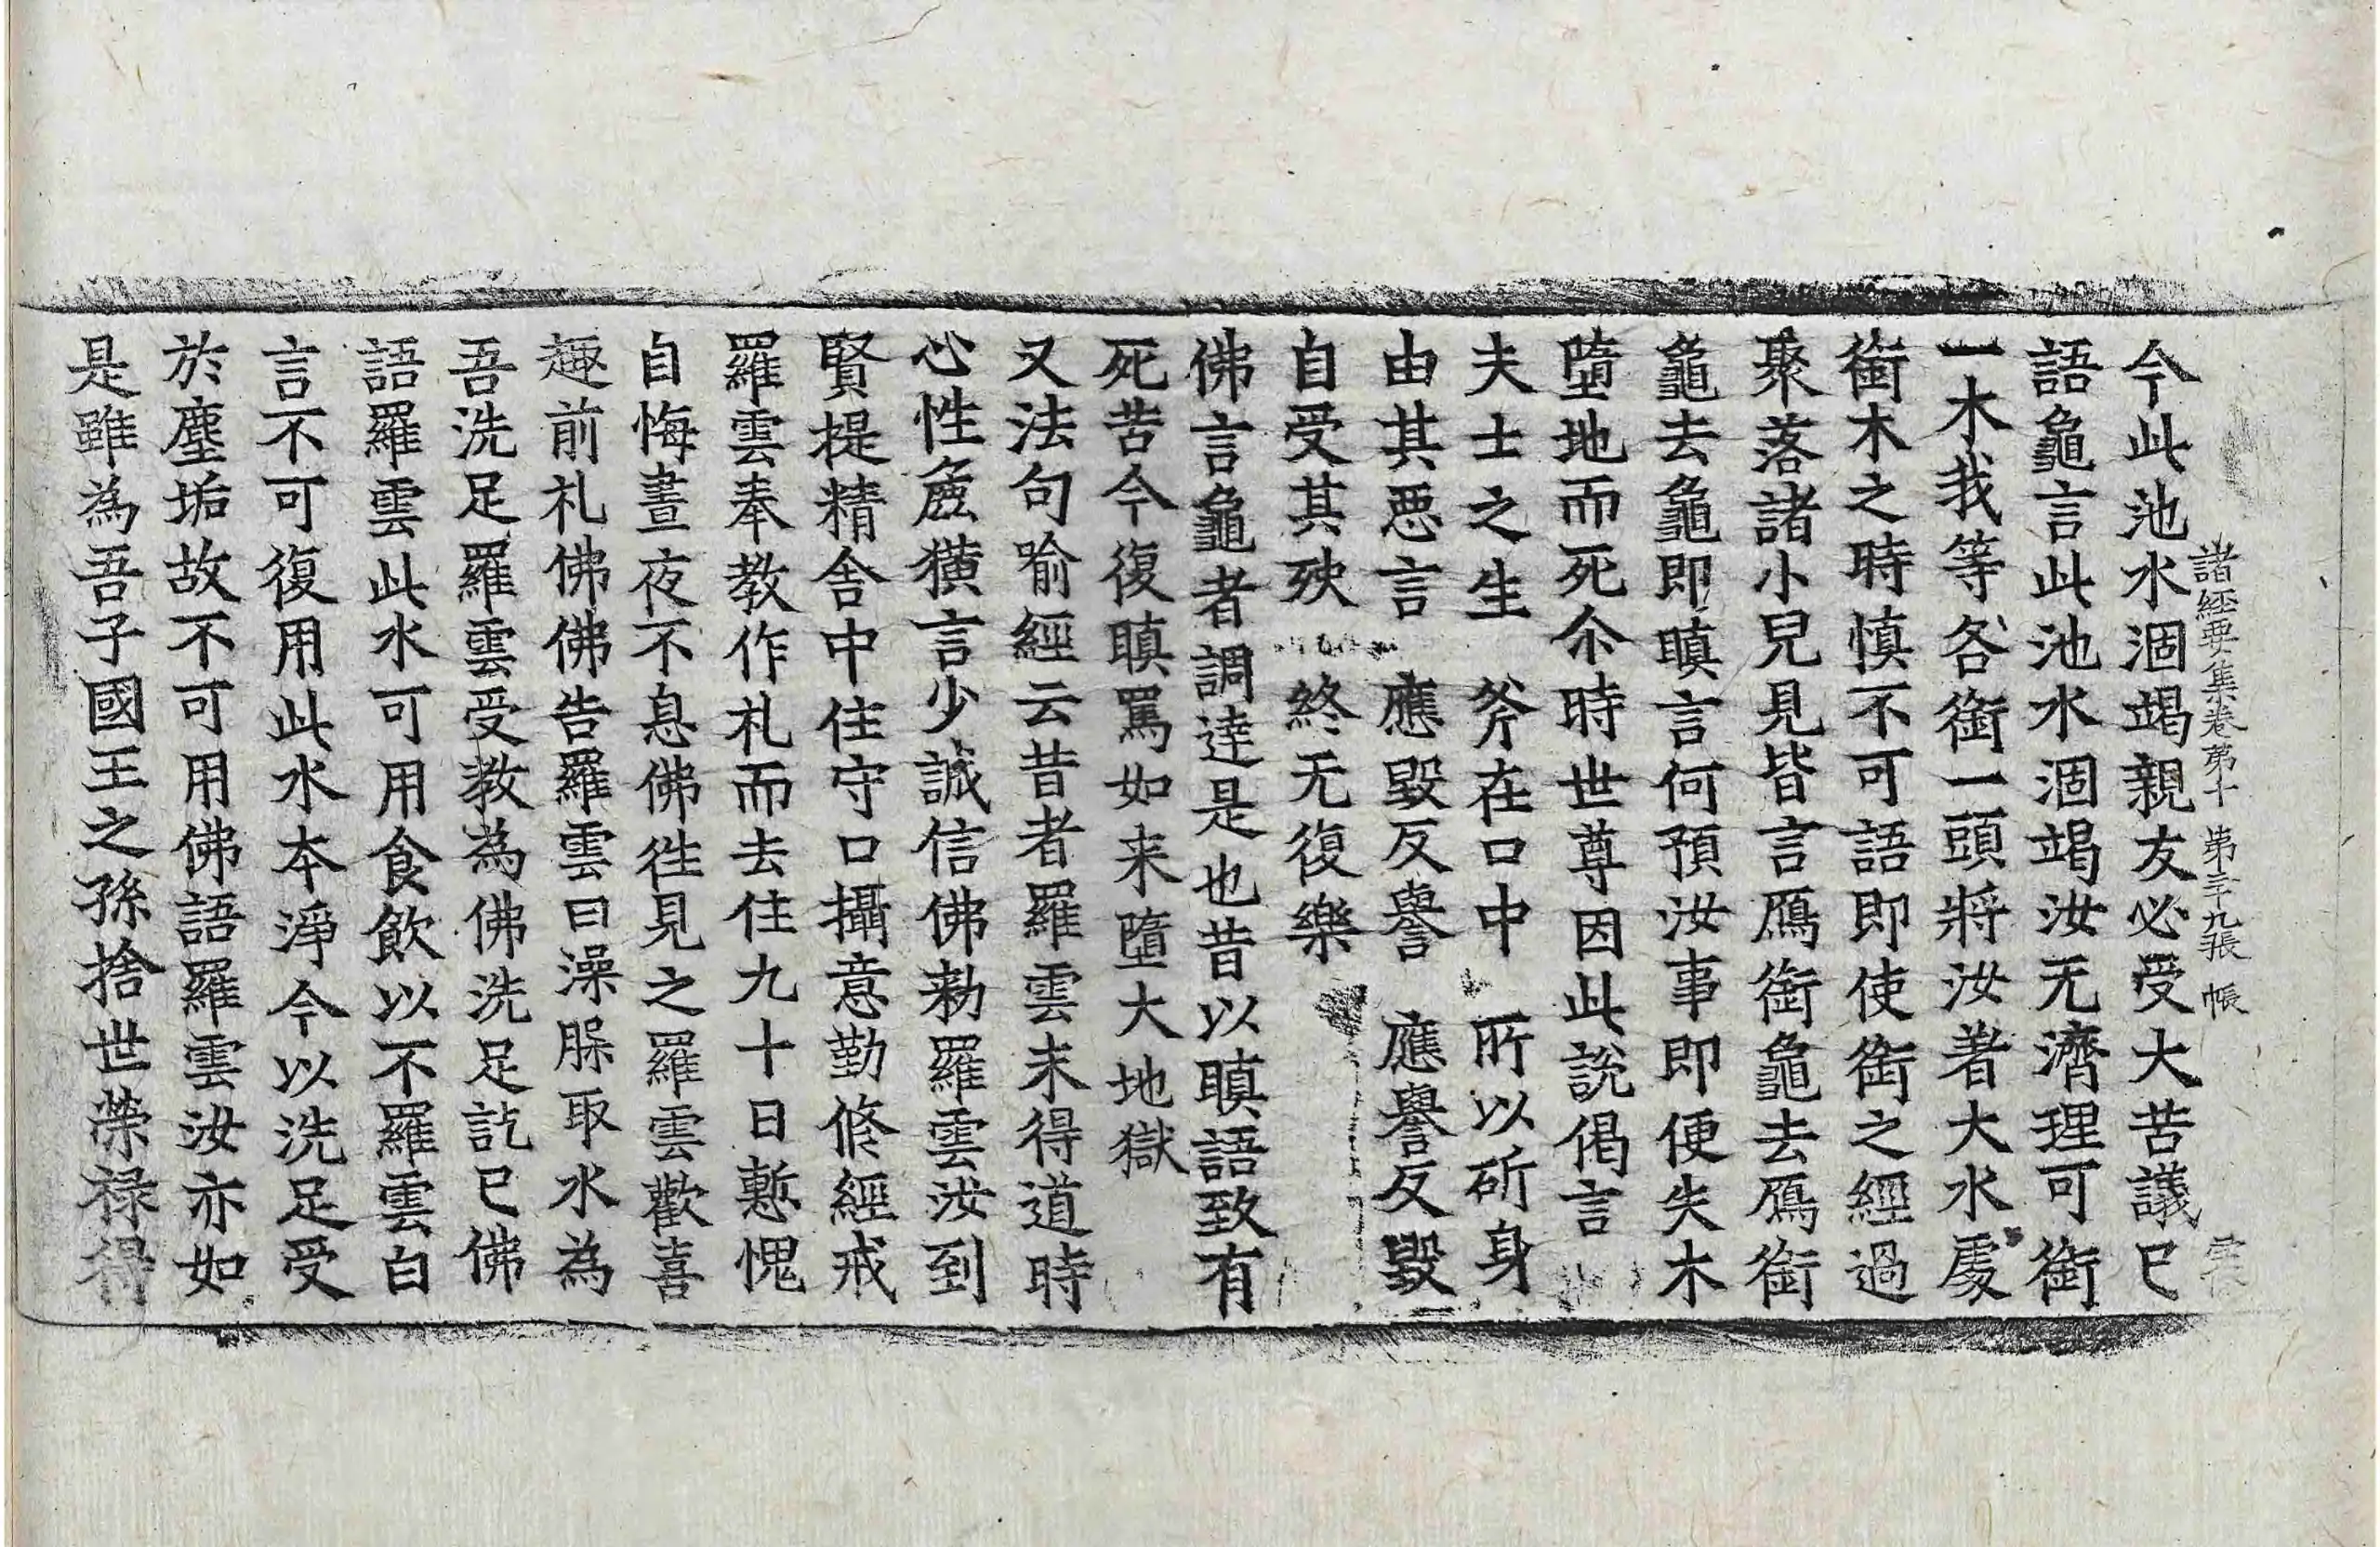 諸經要集卷第十 第二十九張 帳
今此池水涸竭親友必受大苦議已
語龜言此池水涸竭汝无濟理可銜
一木我等各銜一頭將汝著大水處
銜木之時慎不可語即使銜之經過
聚落諸小兒見皆言鴈銜龜去鴈銜
龜去龜即瞋言何預汝事即便失木
墮地而死尒時世尊因此說偈言
夫士之生　斧在口中　所以斫身
由其惡言　應毀反譽　應譽反毀
自受其殃　終无復樂
佛言龜者調達是也昔以瞋語致有
死苦今復瞋罵如来墮大地獄
又法句喻經云昔者羅雲未得道時
心性麁獷言少誠信佛勑羅雲汝到
賢提精舍中住守口攝意勤脩經戒
羅雲奉教作礼而去住九十日慙愧
自悔晝夜不息佛徃見之羅雲歡喜
趣前礼佛佛告羅雲曰澡槃取水為
吾洗足羅雲受教為佛洗足訖已佛
語羅雲此水可用食飲以不羅雲白
言不可復用此水本淨今以洗足受
於塵垢故不可用佛語羅雲汝亦如
是雖為吾子國王之孫捨世榮禄得